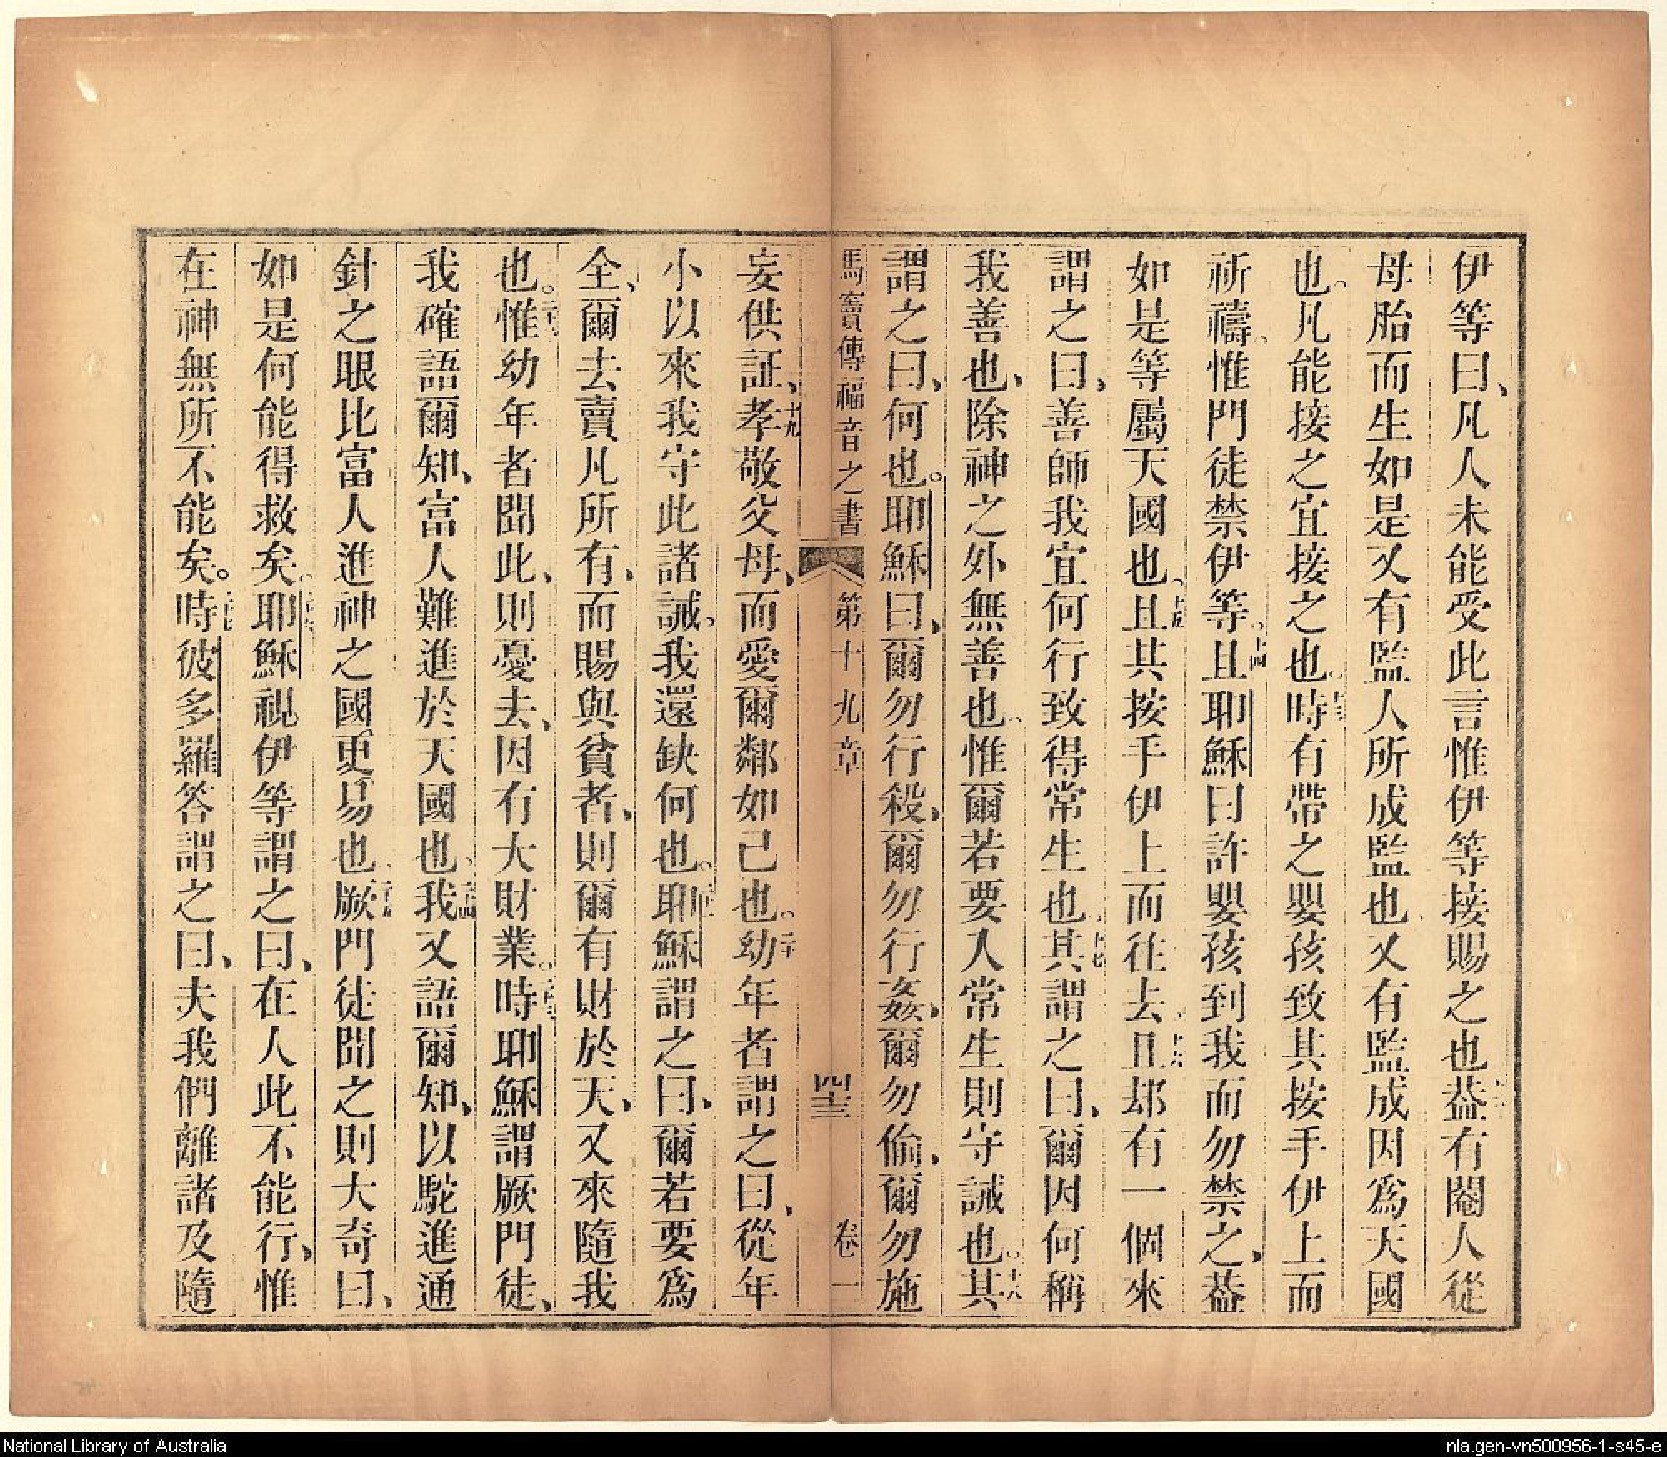 伊等曰、凡人未能受此言惟伊等接賜之也葢有閹人從
母胎而生如是又有監人所成監也又有監成因爲天國
也。凡能接之宜接之也。時有帶之嬰孩致其按手伊上而
祈禱。惟門徒禁伊等。十四且耶穌曰許嬰孩到我而勿禁之、葢
如是等屬天國也。十五且其按手伊上而往去。十六且𨚫有一個來
謂之曰、善師我宜何行致得常生也。十七其謂之曰、爾因何稱
我善也、除神之外無善也。惟爾若要人常生則守誡也。十八其
謂之曰、何也。耶穌曰、爾勿行殺、爾勿行姦、爾勿偷、爾勿施
馬竇傳福音之書 第十九章 四十三 卷一
妄供証、十九孝敬父母、而愛爾鄰如己也。二十幼年者謂之曰、從年
小以來我守此諸誡。我還缺何也。耶穌謂之曰、爾若要爲
全、爾去賣凡所有、而賜與貧者、則爾有財於天、又來隨我
也。惟幼年者聞此、則憂去、因有大財業。時耶穌謂厥門徒、
我確語爾知、富人難進於天國也。我又語爾知、以駝進通
針之眼比富人進神之國更易也。厥門徒聞之則大奇曰、
如是何能得救矣。耶穌視伊等謂之曰、在人此不能行、惟
在神無所不能矣。時彼多羅答謂之曰、夫我們離諸及隨
National Library of Australia
nla.gen-vn500956-1-s45-e